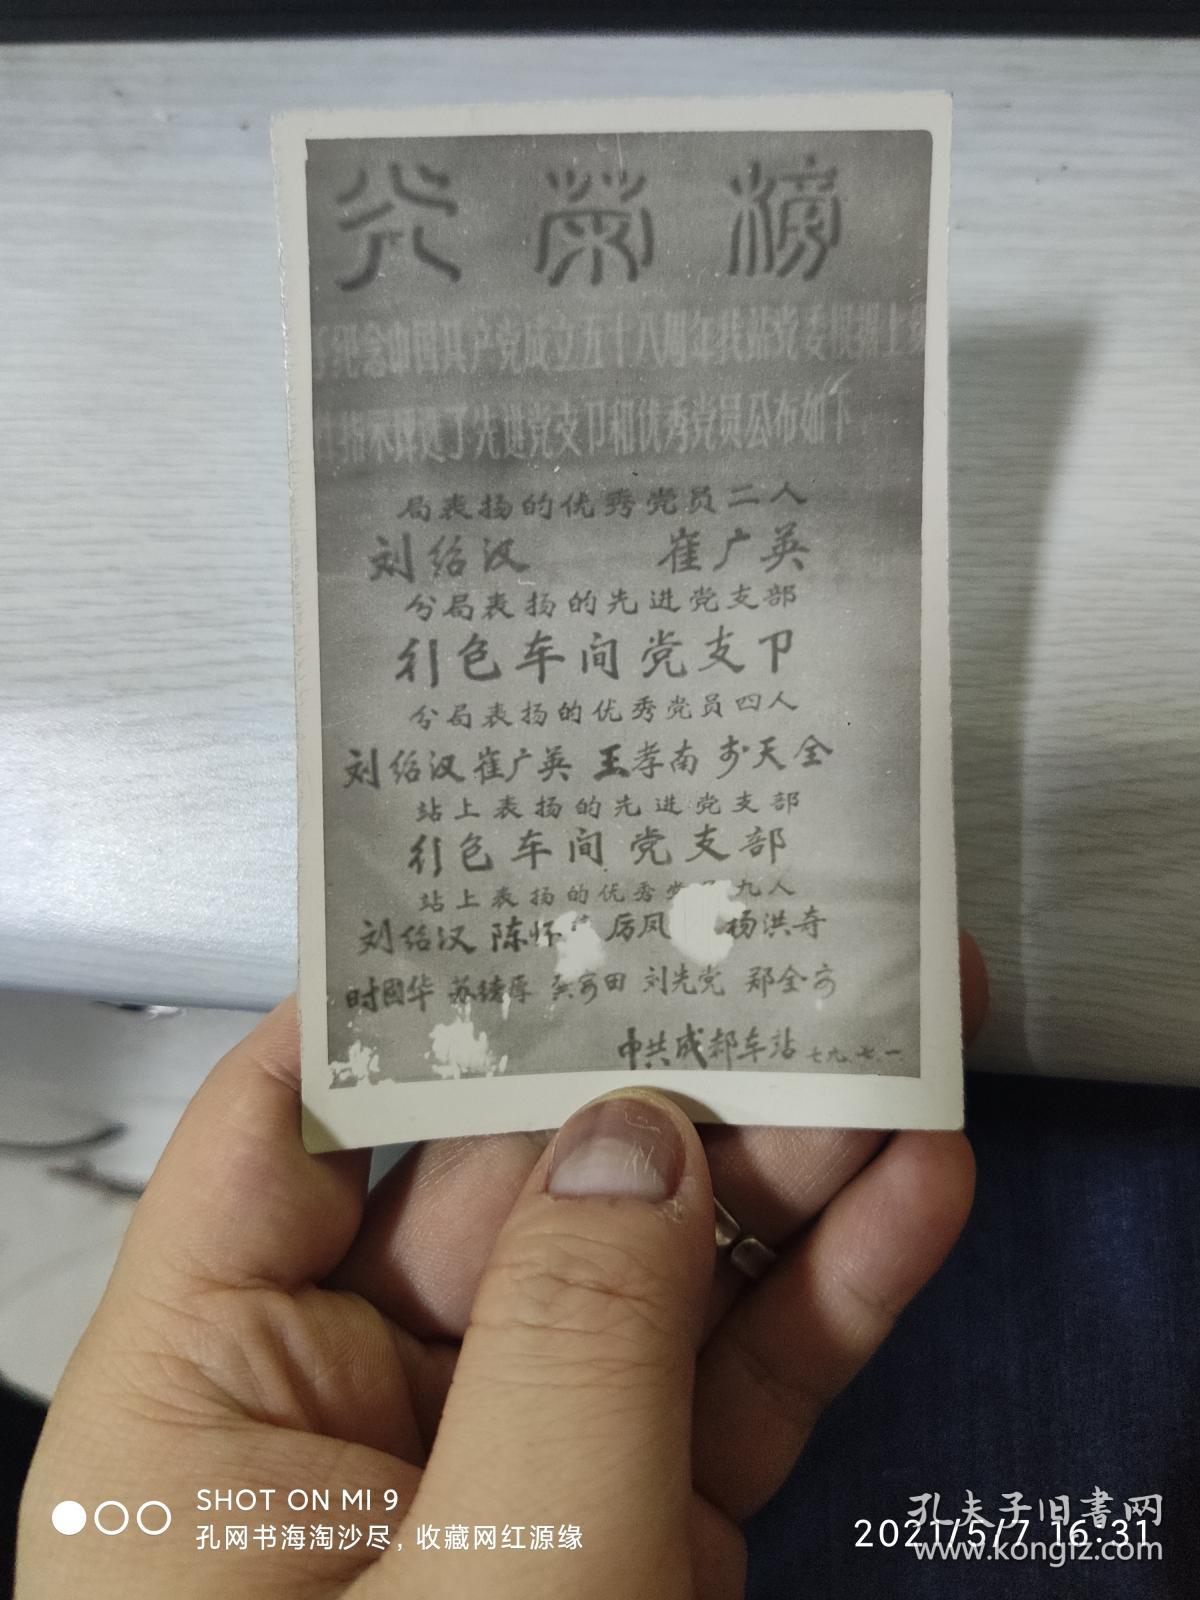 光荣榜
纪念中国共产党成立五十八周年我站党委根据上级
指示评选了先进党支卩和优秀党员公布如下
局表扬的优秀党员二人
刘绍汉 崔广英
分局表扬的先进党支部
行包车间党支卩
分局表扬的优秀党员四人
刘绍汉 崔广英 王孝南 天全
站上表扬的先进党支部
行包车间党支部
站上表扬的优秀党员九人
刘绍汉 陈怀 厉凤 杨洪奇
时国华 苏绪厚 田 刘先党 郑全
中共成都车站 七九.七.一
SHOT ON MI 9
孔网书海淘沙尽，收藏网红源缘
孔夫子旧书网
2021/5/7 16:31
www.kongfz.com